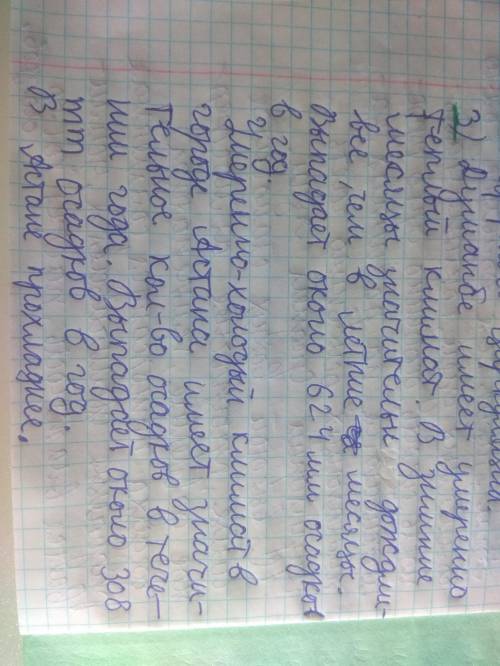 3) Душанбе имеет умеренно
теплый климат. В зимние
месяцы значительн дождли-
вее, чем в летние месяцы.
Выпадает около 624 мм осадков
в год.
Умеренно-холодый климат в
городе Астана имеет значи-
тельное кол-во осадков в тече-
нии года. Выпадает около 308
mm осадков в год.
В Астане прохладнее.